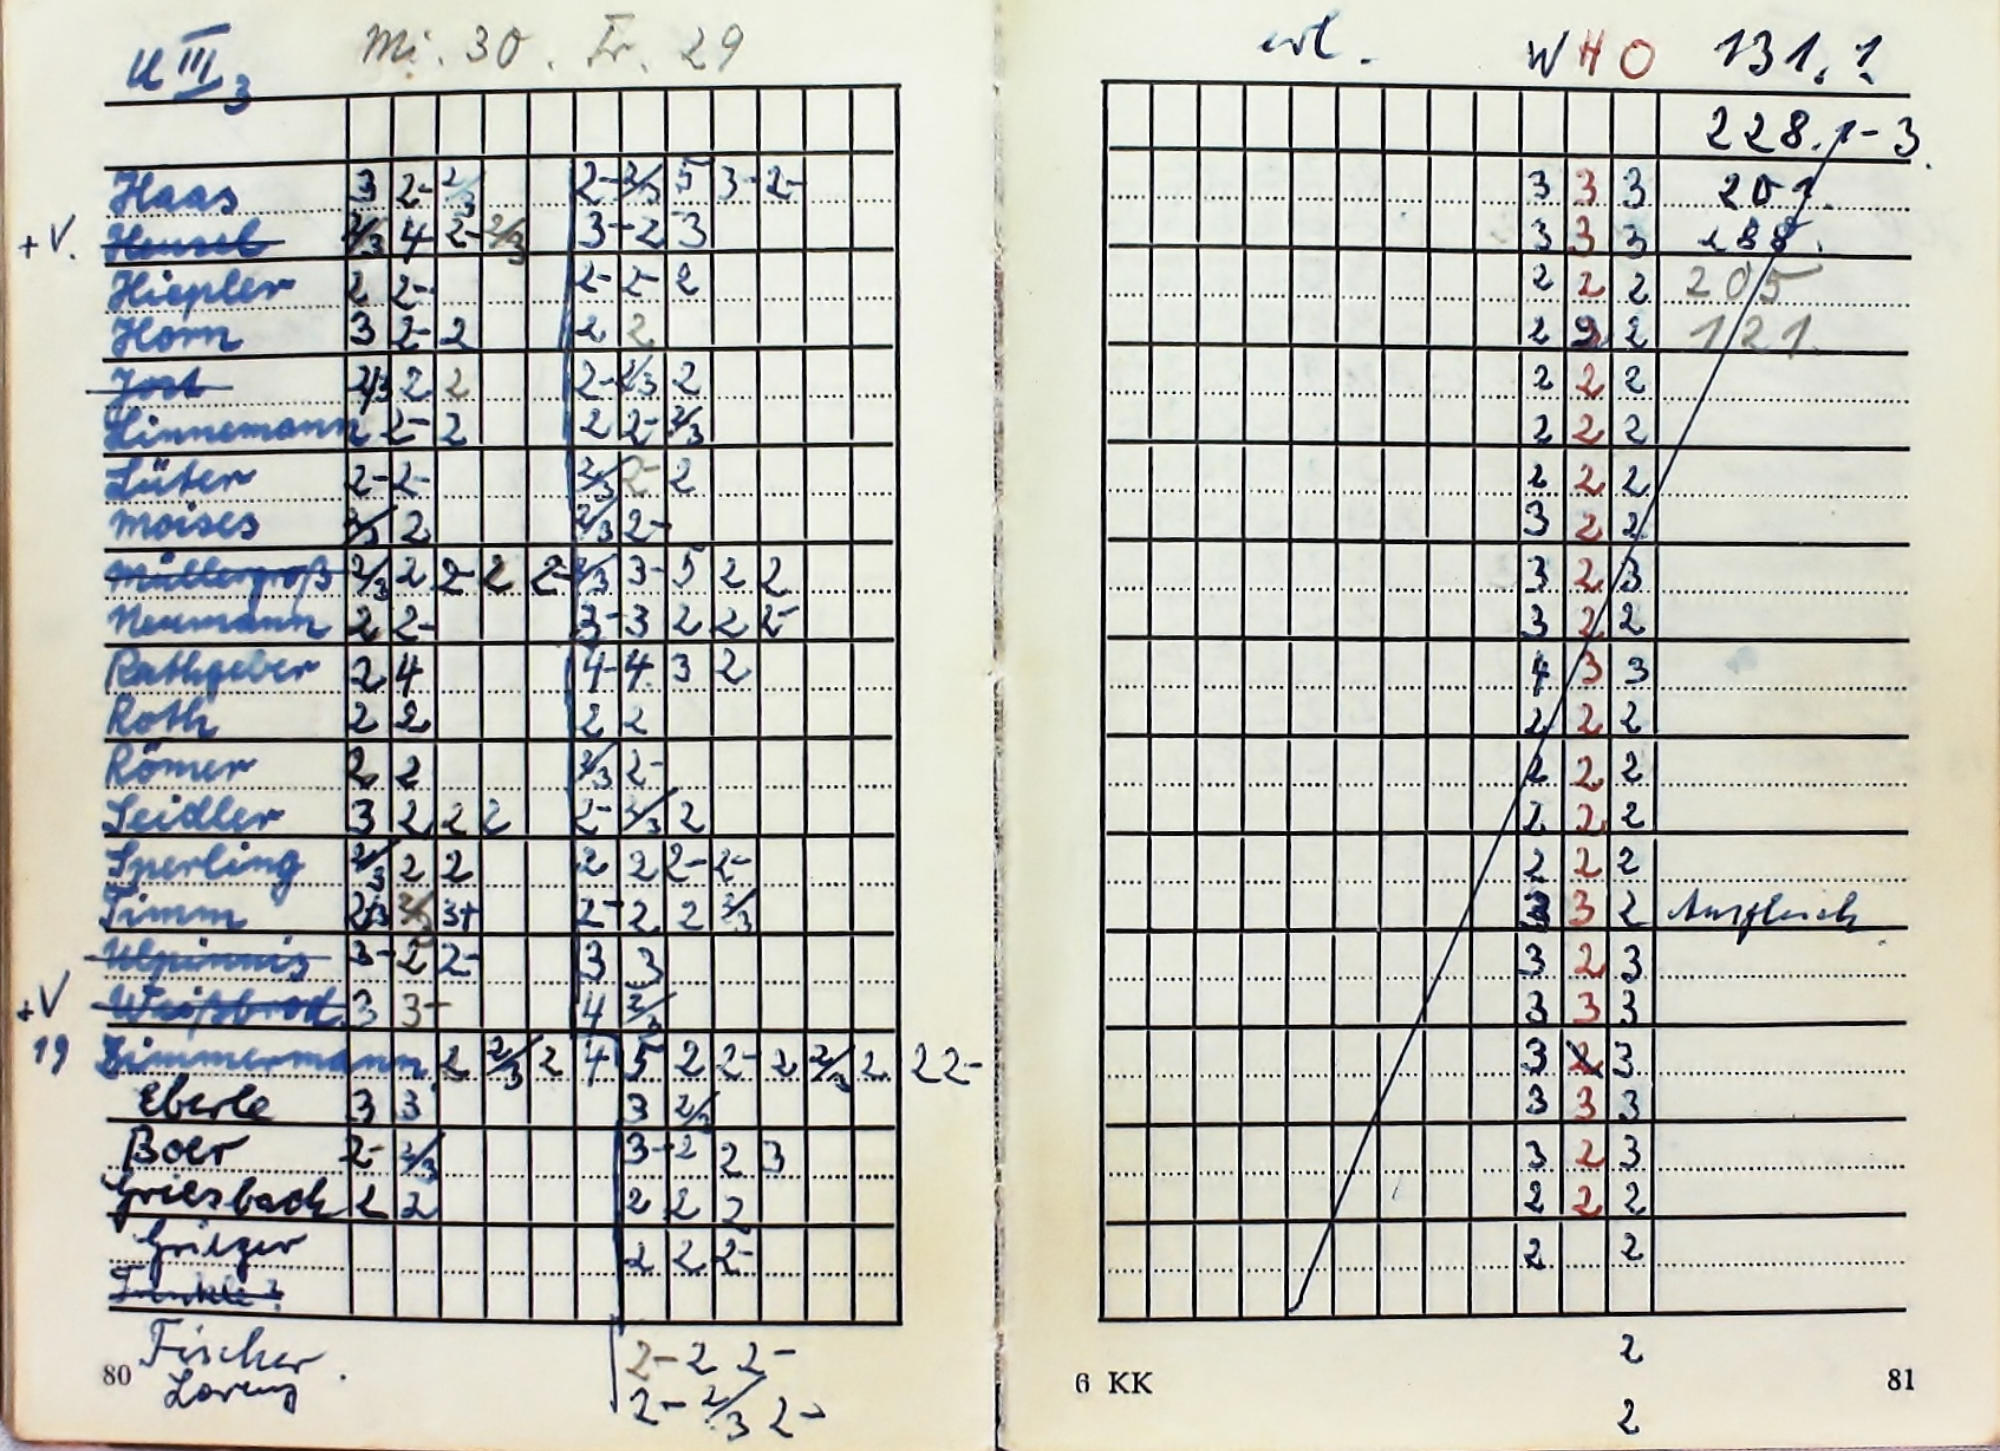 U III 3 Mi. 30. Fr. 29
Haas 3 2- 2/3 2- 2/3 5 3- 2-
+V. Hensel 2/3 4 2- 2/3 3- 2 3
Hiepler 2 2- 2- 2- 2
Horn 3 2- 2 2 2
Jost 2/3 2 2 2- 2/3 2
Linnemann 2 2- 2 2 2- 2/3
Lüter 2- 2- 2/3 2- 2
Moises 2/3 2 2/3 2-
Müllergroß 2/3 2 2- 2 2- 2/3 3- 5 2 2
Neumann 2 2- 3- 3 2 2 2-
Rathgeber 2 4 4- 4 3 2
Roth 2 2 2 2
Römer 2 2 2/3 2-
Seidler 3 2 2 2 2- 2/3 2
Sperling 2/3 2 2 2 2 2- 2-
Timm 2/3 2/3 3+ 2- 2 2 2/3
Ulpinnis 3- 2 2- 3 3
+V Weißbrod 3 3- 4 2/3
19 Zimmermann 2 2/3 2 4 5 2 2- 2 2/3 2 2 2-
Eberle 3 3 3 2/3
Boer 2- 2/3 3- 2 2 3
Griesbach 2 2 2 2 2
Grieger 2 2 2-
Fischer 2- 2 2-
Lorenz 2- 2/3 2-
80
erl. W H O 131. 1.
228. 1-3.
3 3 3 201.
3 3 3 188.
2 2 2 205
2 2 2 121.
2 2 2
2 2 2
2 2 2
3 2 2
3 2 3
3 2 2
4 3 3
2 2 2
2 2 2
2 2 2
2 2 2
3 3 2 Ausgleich
3 2 3
3 3 3
3 2 3
3 3 3
3 2 3
2 2 2
2 2
2
2
6 KK 81